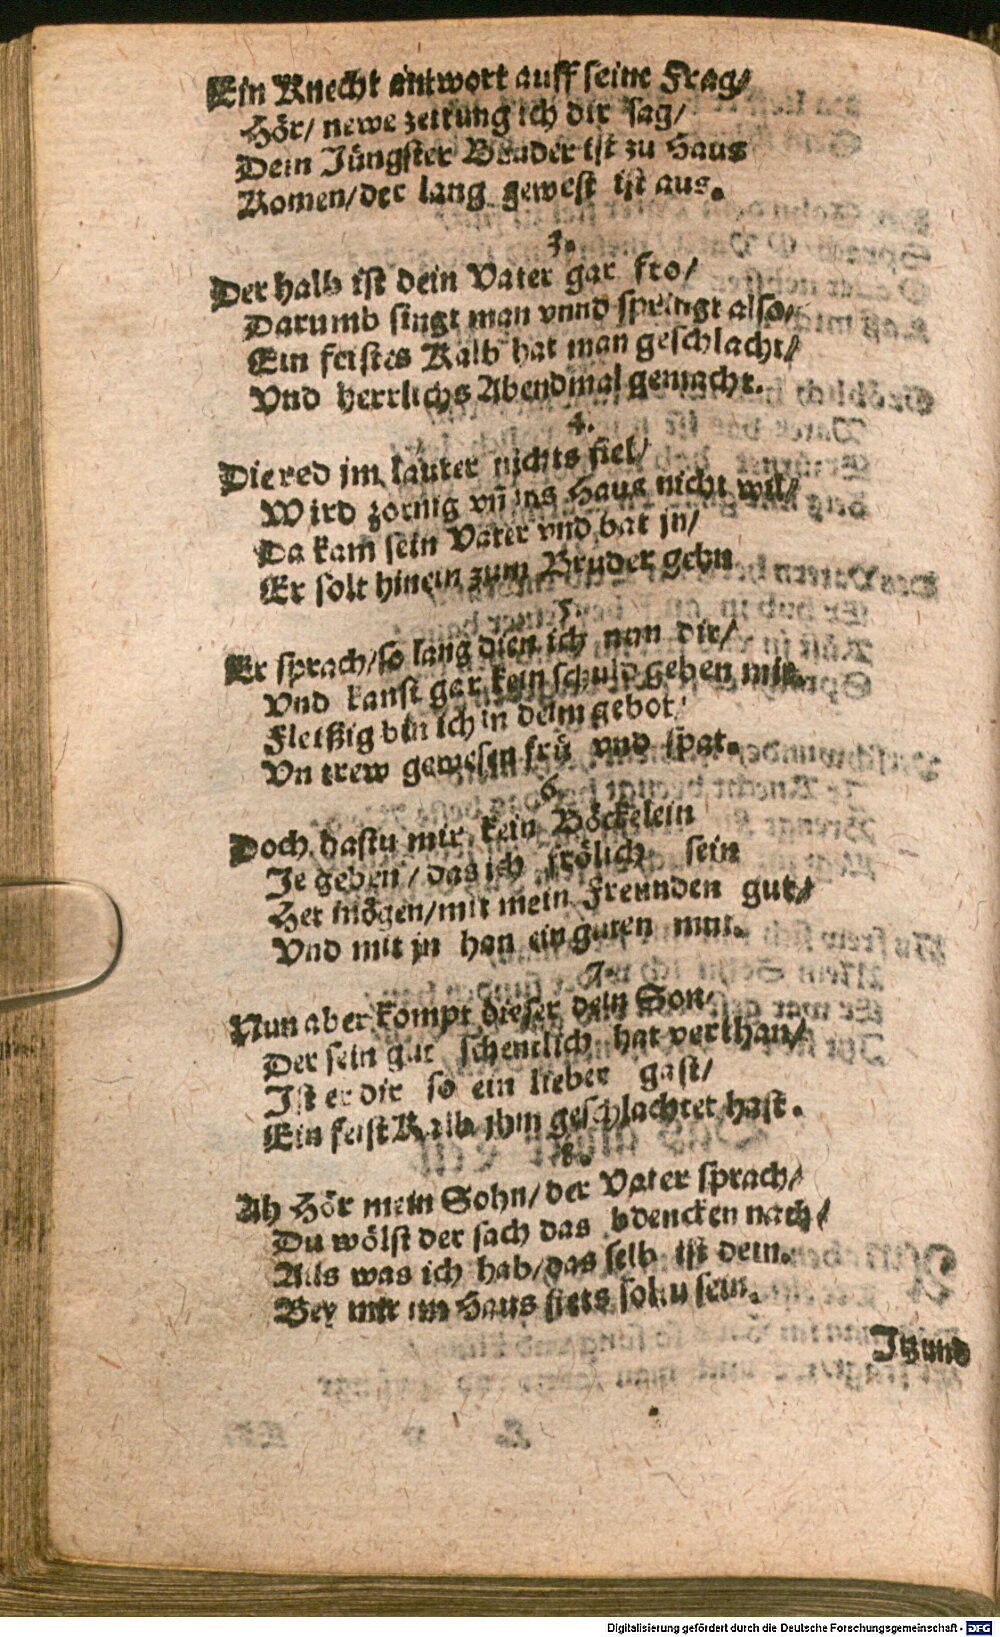 Ein Knecht antwort auff seine Frag/
Hör/ newe zeitung ich dir sag/
Dein Jüngster Bruder ist zu Haus
Komen/der lang gewest ist aus.
3.
Der halb ist dein Vater gar fro/
Darumb singt man vnnd springt also/
Ein feistes Kalb hat man geschlacht/
Vnd herrlichs Abendmal gemacht.
4.
Die red jm lauter nichts fiel/
Wird zornig vñ ins Haus nicht wil/
Da kam sein Vater vnd bat jn/
Er solt hinein zum Bruder gehn
5.
Er sprach/so lang dien ich nun dir/
Vnd kanst gar kein schuld geben mir.
Fleißig bin ich in deim gebot/
Vn trew gewesen frü vnd spat.
6.
Doch hastu mir kein Böckelein
Je geben/ das ich frölich sein
Het mögen/mit mein Freunden gut/
Vnd mit jn han ein guten mut.
7.
Nun aber kompt dieser dein Son/
Der sein gut schentlich hat verthan/
Ist er dir so ein lieber gast/
Ein feist Kalb jhm geschlachtet hast.
8.
Ah Hör mein Sohn/der Vater sprach/
Du wölst der sach das bdencken nach/
Alls was ich hab/das selb ist dein.
Bey mir im Haus stets soltu sein.
Itzund
Digitalisierung gefördert durch die Deutsche Forschungsgemeinschaft - DFG